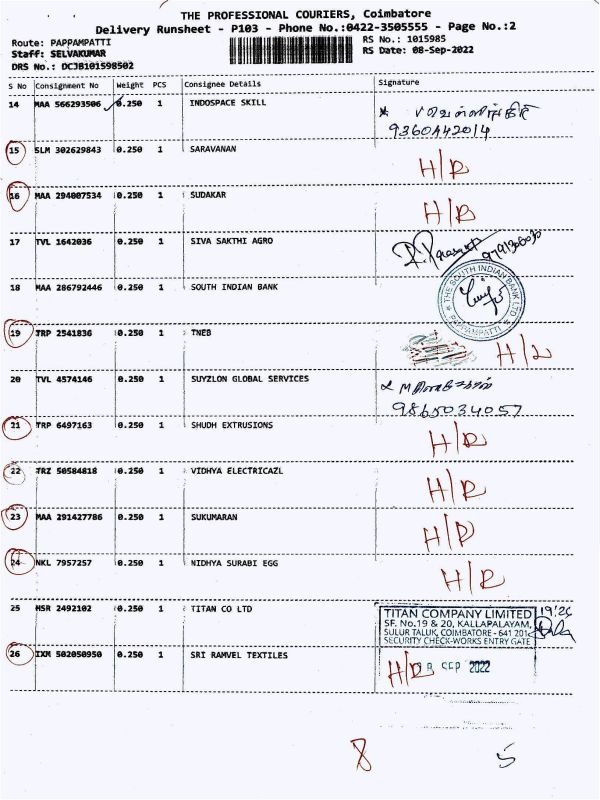 THE PROFESSIONAL COURIERS, Coimbatore
Delivery Runsheet - P103 - Phone No.:0422-3505555 - Page No.:2
Route: PAPPAMPATTI
RS No.: 1015985
Staff: SELVAKUMAR
RS Date: 08-Sep-2022
DRS No.: DCJB101598502
S No Consignment No Weight PCS Consignee Details Signature
14 MAA 566293506 0.250 1 INDOSPACE SKILL
9360442014
15 SLM 302629843 0.250 1 SARAVANAN H/R
16 MAA 294007534 0.250 1 SUDAKAR H/R
17 TVL 1642036 0.250 1 SIVA SAKTHI AGRO
18 MAA 286792446 0.250 1 SOUTH INDIAN BANK
THE SOUTH INDIAN BANK LTD
PAPPAMPATTI
19 TRP 2541836 0.250 1 TNEB
20 TVL 4574146 0.250 1 SUYZLON GLOBAL SERVICES
9865034057
21 TRP 6497163 0.250 1 SHUDH EXTRUSIONS H/R
22 TRZ 50584818 0.250 1 VIDHYA ELECTRICAZL H/R
23 MAA 291427786 0.250 1 SUKUMARAN H/R
24 NKL 7957257 0.250 1 NIDHYA SURABI EGG H/R
25 HSR 2492102 0.250 1 TITAN CO LTD
TITAN COMPANY LIMITED
SF. No.19 & 20, KALLAPALAYAM,
SULUR TALUK, COIMBATORE - 641 201
SECURITY CHECK-WORKS ENTRY GATE
26 IXM 502050950 0.250 1 SRI RAMVEL TEXTILES H/R
8 SEP 2022
8 5